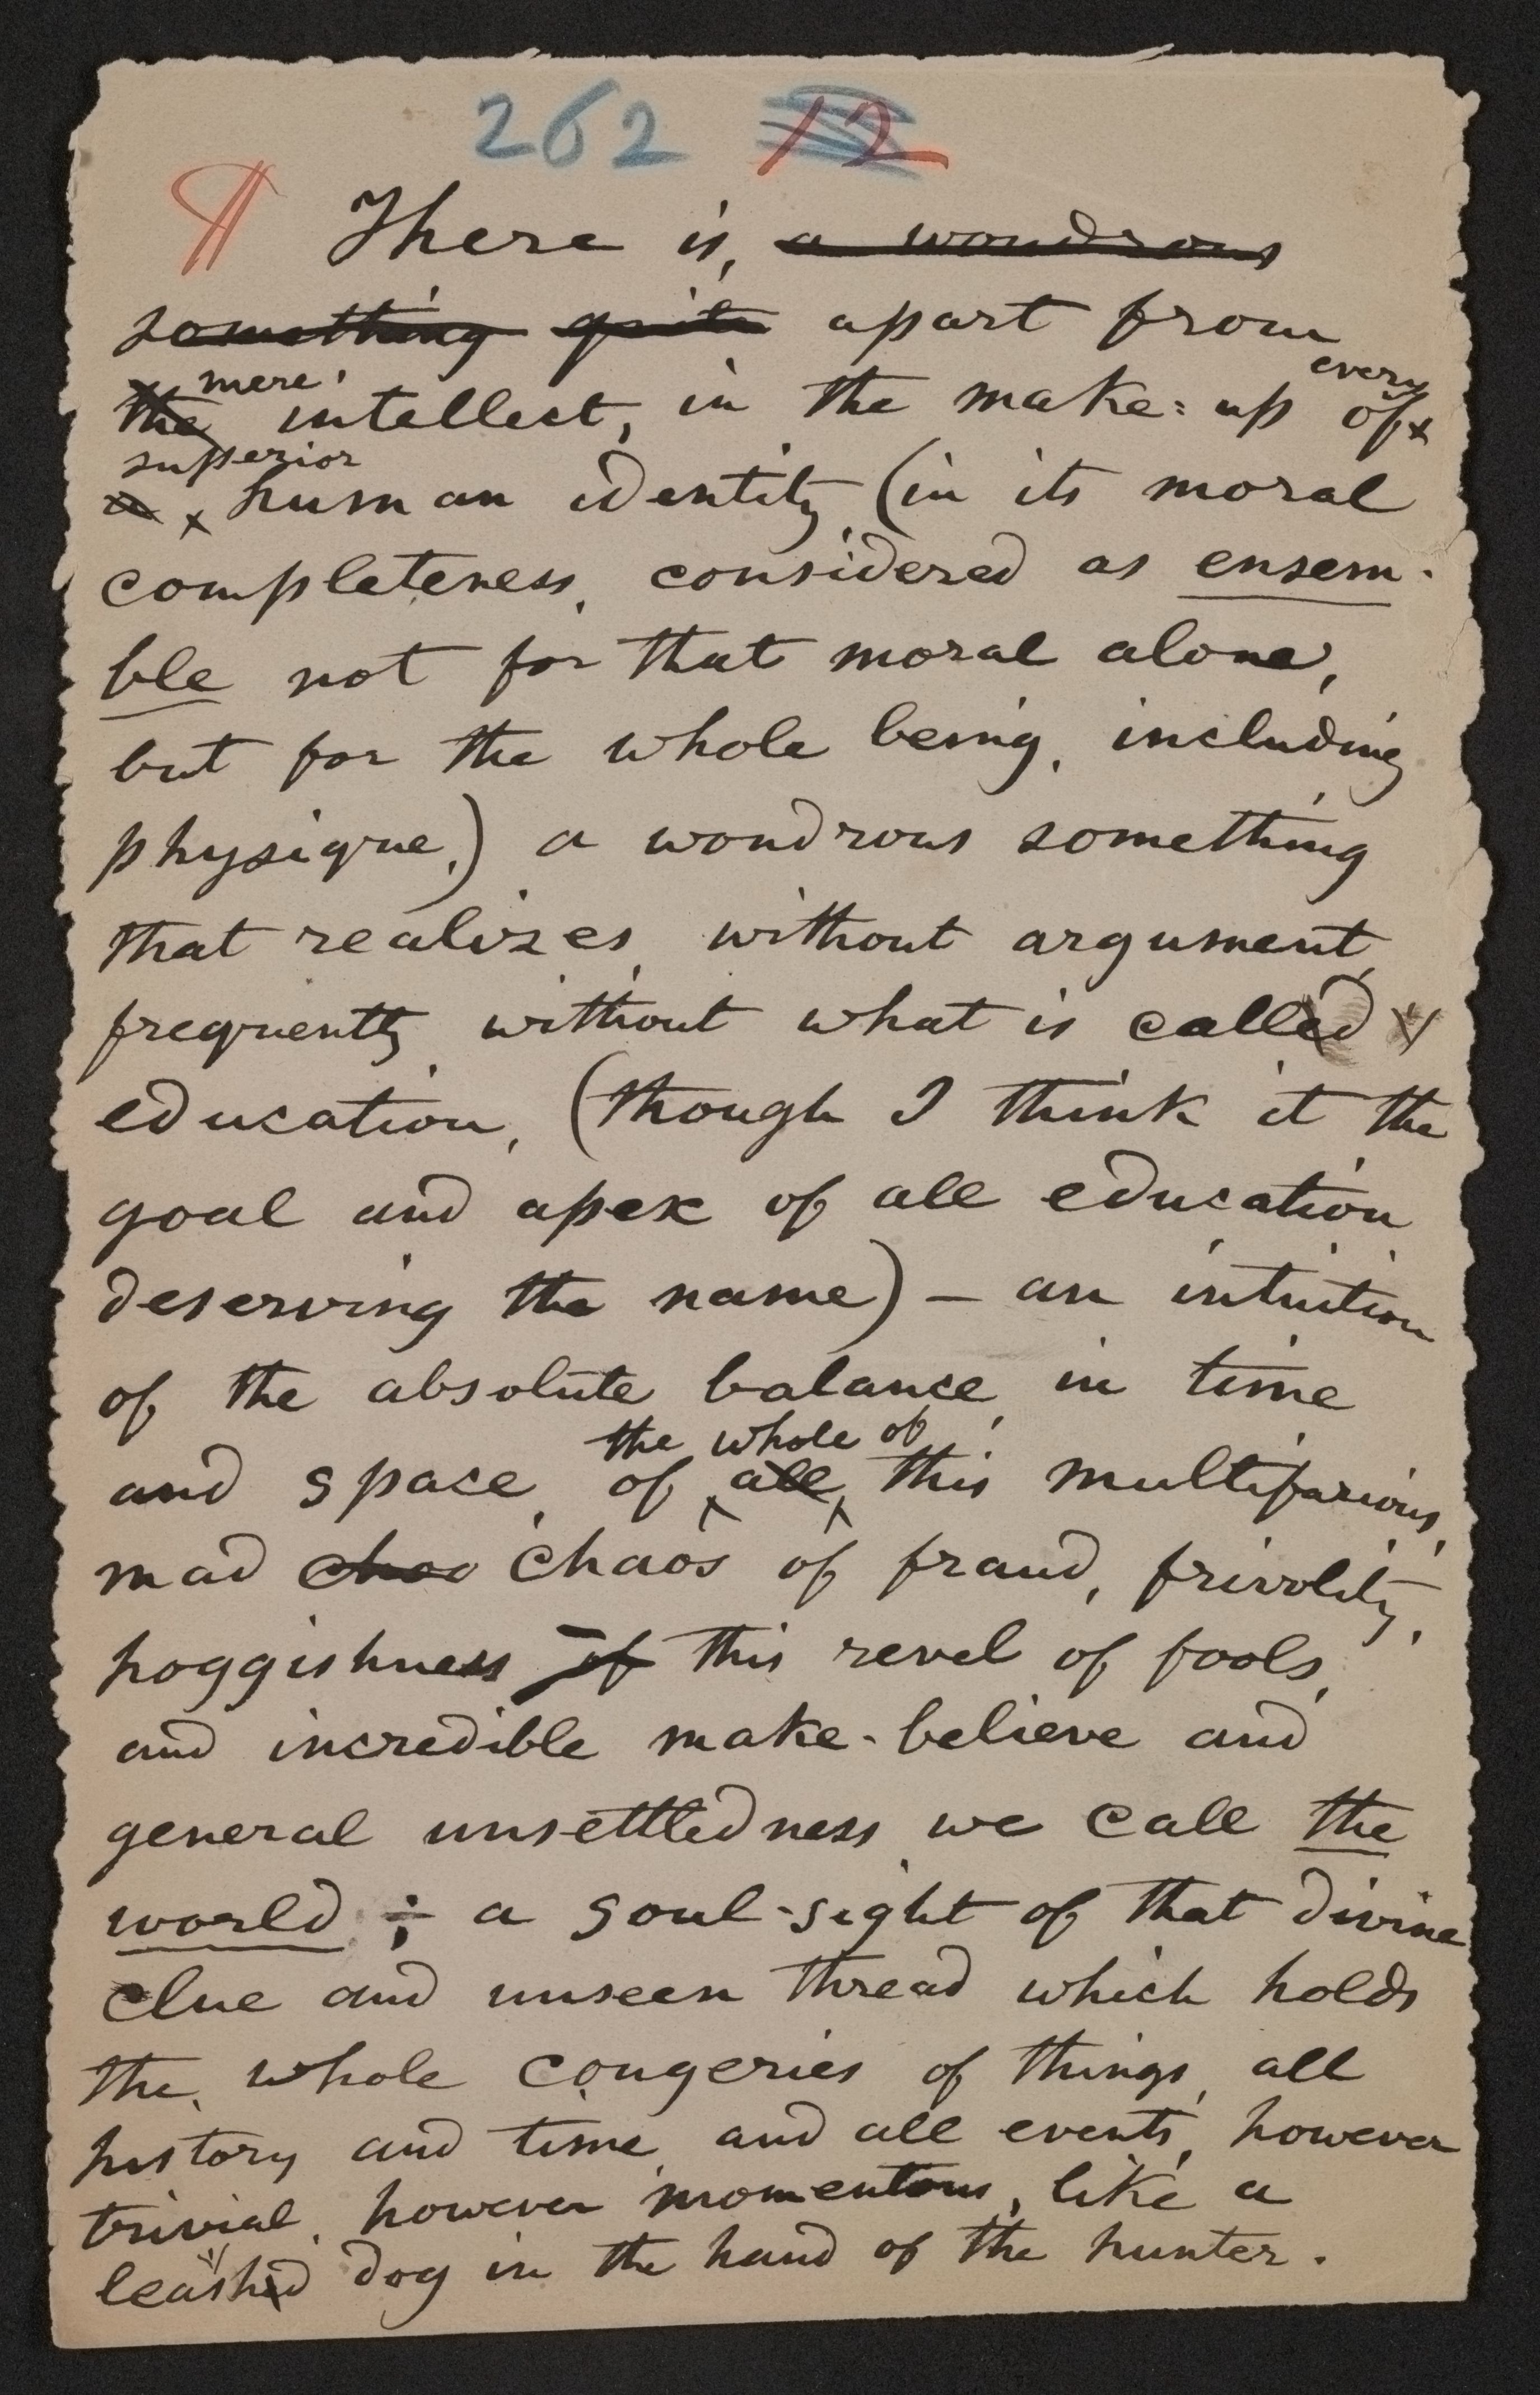 262 12
¶ There is, a wondrous
something quite apart from
the mere intellect, in the make-up of every
a superior human identity, (in its moral
completeness, considered as ensem-
ble not for that moral alone,
but for the whole being, including
physique,) a wondrous something
that realizes, without argument,
frequently without what is called
education, (though I think it the
goal and apex of all education
deserving the name) — an intuition
of the absolute balance, in time
and space, of all the whole of this multifarious,
mad chao chaos of fraud, frivolity,
hoggishness of this revel of fools,
and incredible make-believe and
general unsettledness, we call the
world; a soul-sight of that divine
clue and unseen thread which holds
the whole congeries of things, all
history and time, and all events, however
trivial, however momentous, like a
leashed dog in the hand of the hunter.